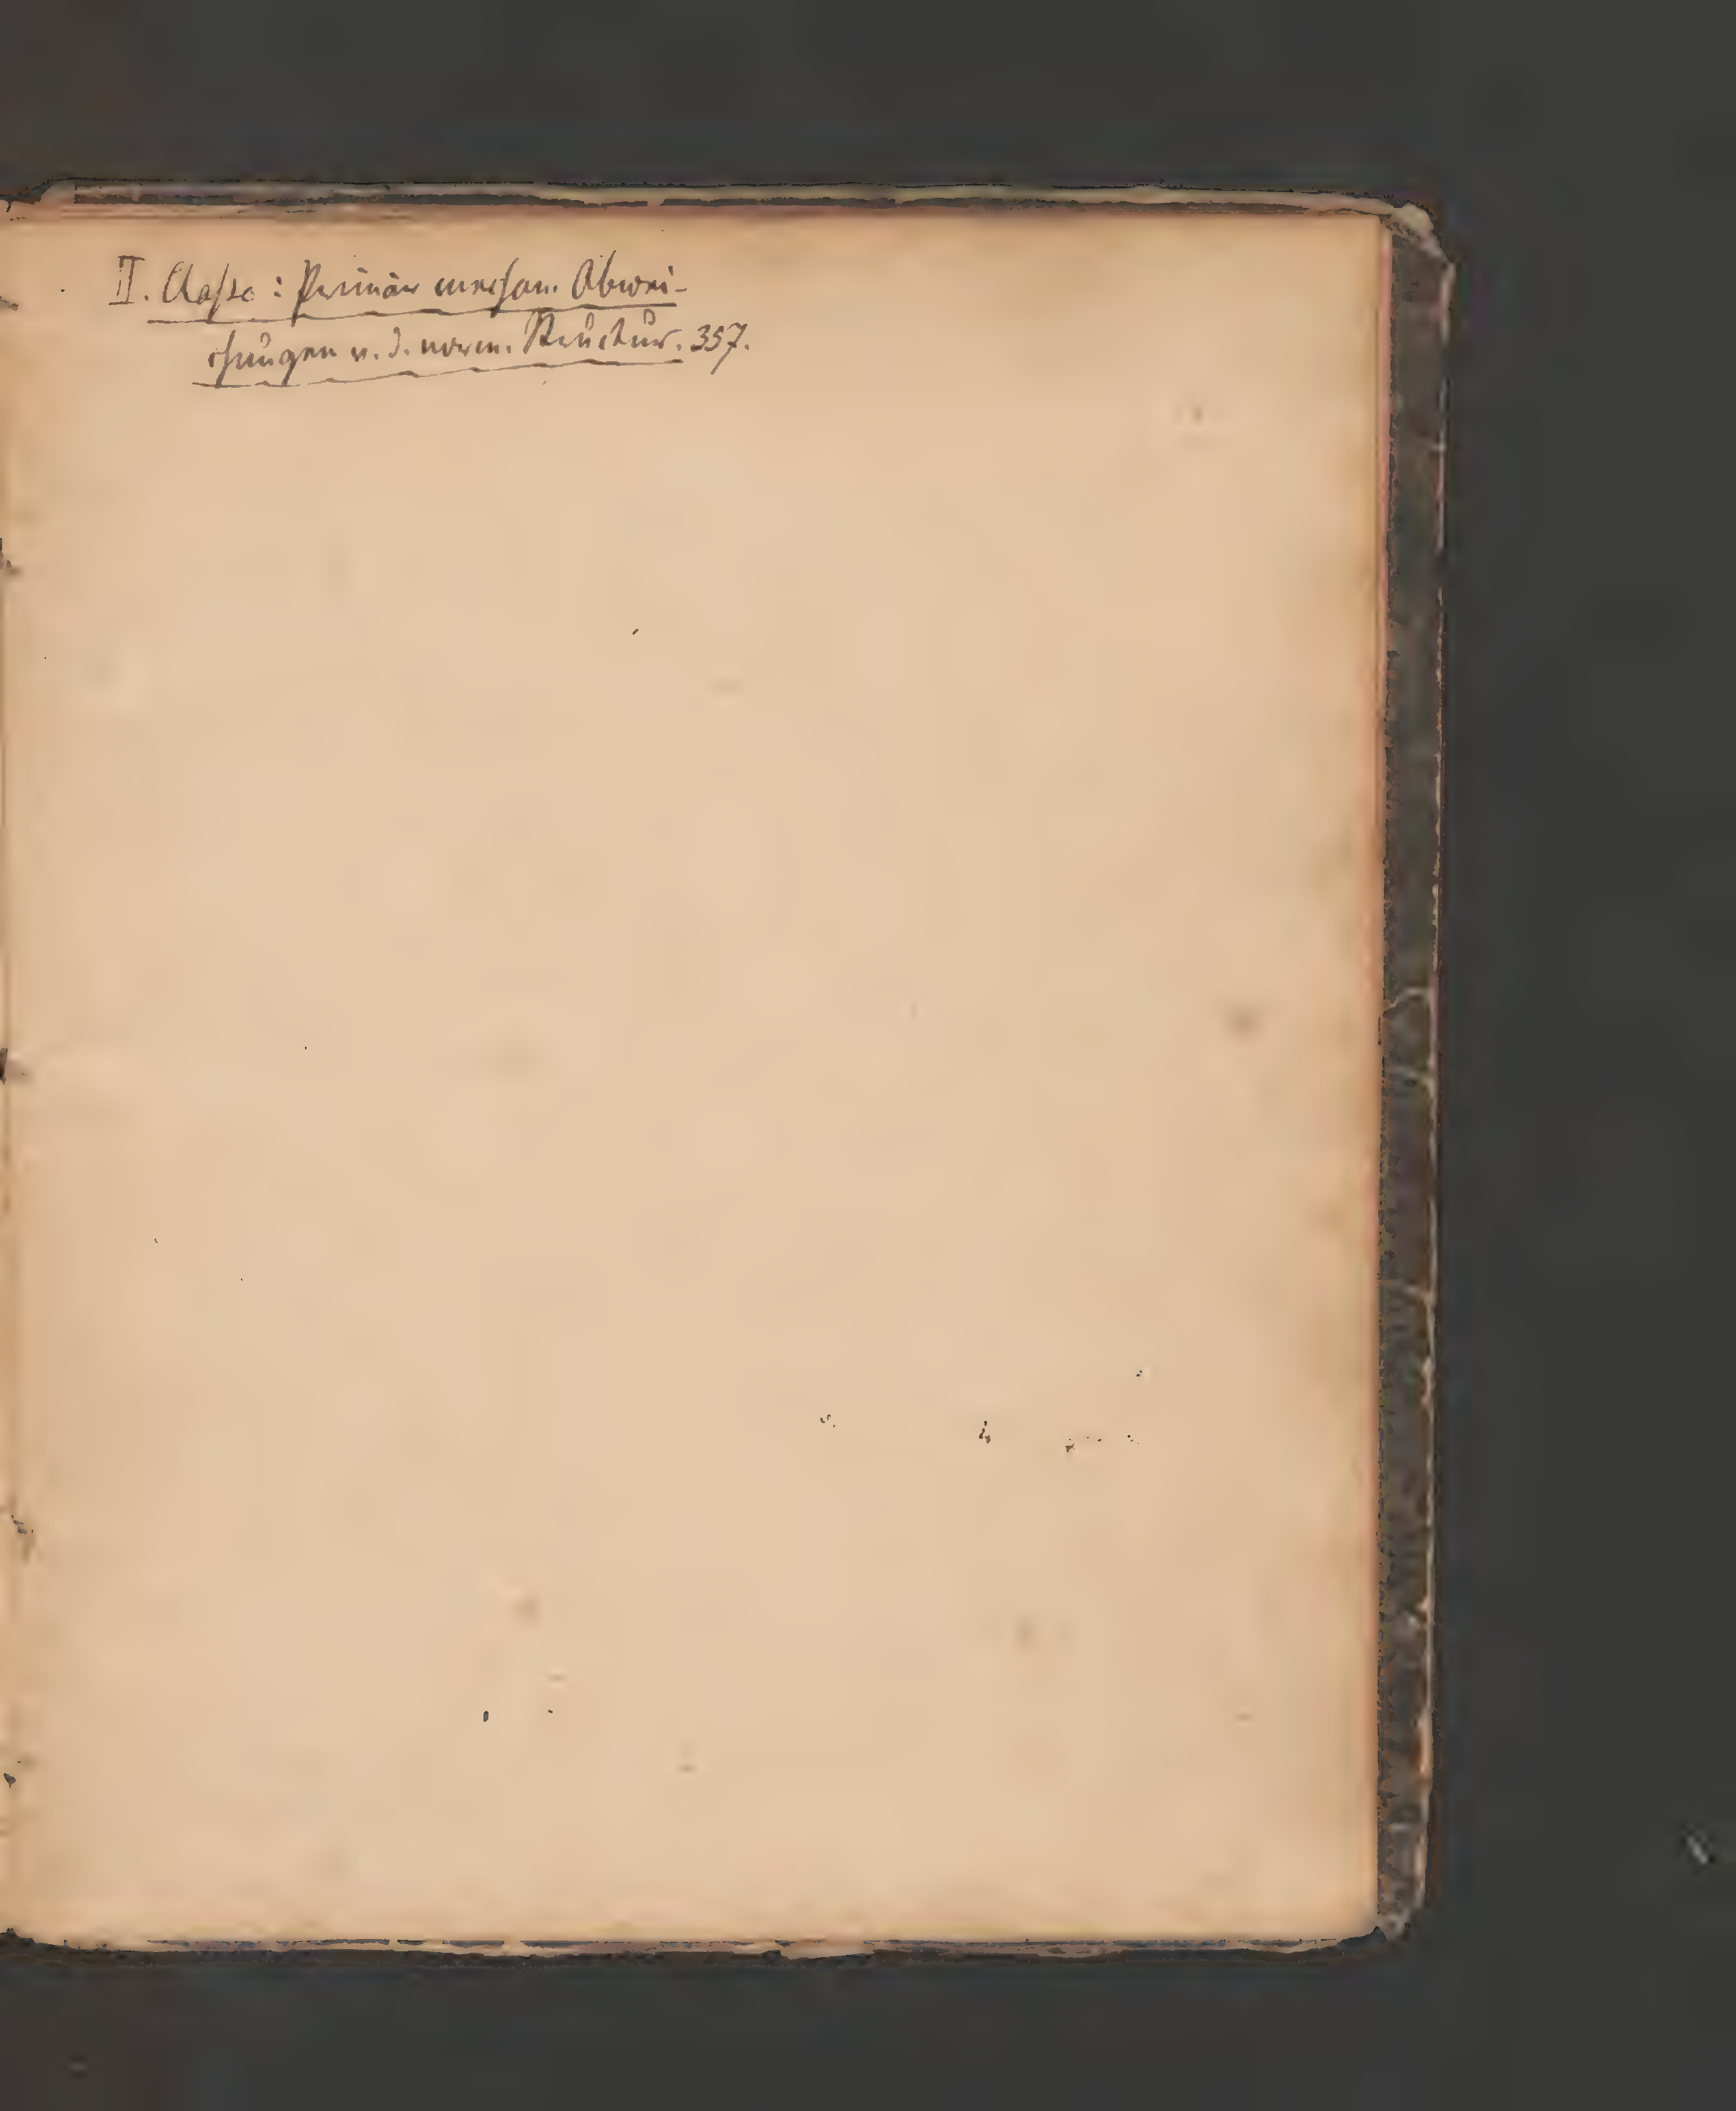 II. Classe: Primär mechan. Abwei-
chungen v. d. norm. Structur. 357.